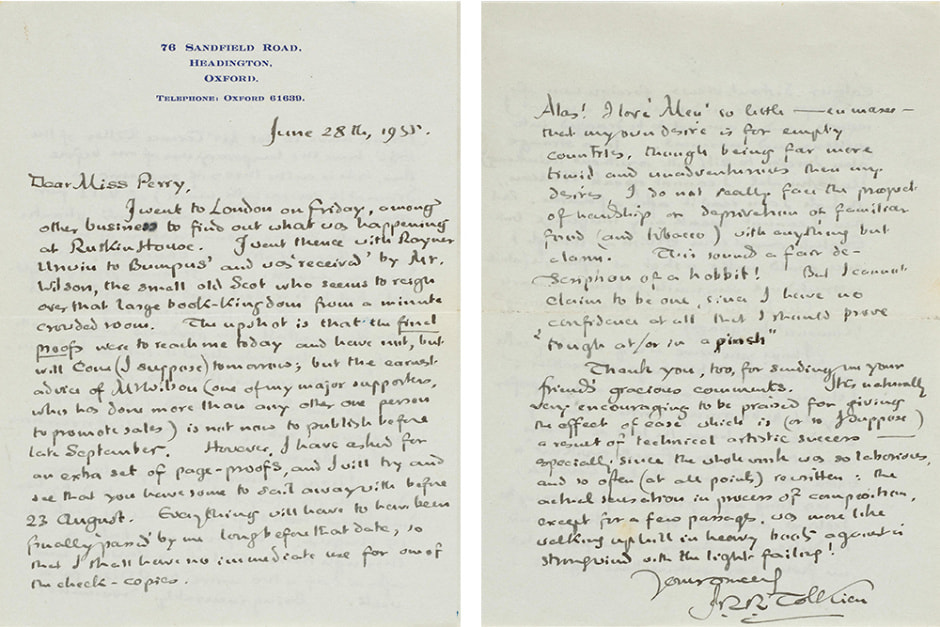 76 SANDFIELD ROAD,
HEADINGTON,
OXFORD.
TELEPHONE: OXFORD 61639.
June 28th, 1955.
Dear Miss Perry,
I went to London on Friday, among
other business to find out what was happening
at Ruskin House. I went thence with Rayner
Unwin to Bumpus' and was 'received' by Mr.
Wilson, the small old Scot who seems to reign
over that large book-kingdom from a minute
crowded room. The upshot is that the final
proofs were to reach me today and have not, but
will come (I suppose) tomorrow; but the earnest
advice of Mr Wilson (one of my major supporters,
who has done more than any other one person
to promote sales) is not now to publish before
late September. However, I have asked for
an extra set of page-proofs, and I will try and
see that you have some to sail away with before
23 August. Everything will have to have been
finally 'passed' by me long before that date, so
that I shall have no immediate use for one of
the check-copies.
Alas! I love 'Men' so little — en masse —
that my own desire is for empty
countries, though being far more
timid and unadventurous than my
desires I do not really face the prospect
of hardship or deprivation of familiar
food (and tobacco) with anything but
alarm. This sounds a fair de-
scription of a hobbit! But I cannot
claim to be one, since I have no
confidence at all that I should prove
"tough at/or in a pinch"
Thank you, too, for sending me your
friend's gracious comments. It is naturally
very encouraging to be praised for giving
the effect of ease which is (or so I suppose)
a result of technical artistic success —
especially since the whole work was so laborious,
and so often (at all points) rewritten: the
actual sensation in process of composition,
except for a few passages, was more like
walking uphill in heavy boots against a
strong wind with the light failing!
Yours sincerely
J.R.R. Tolkien